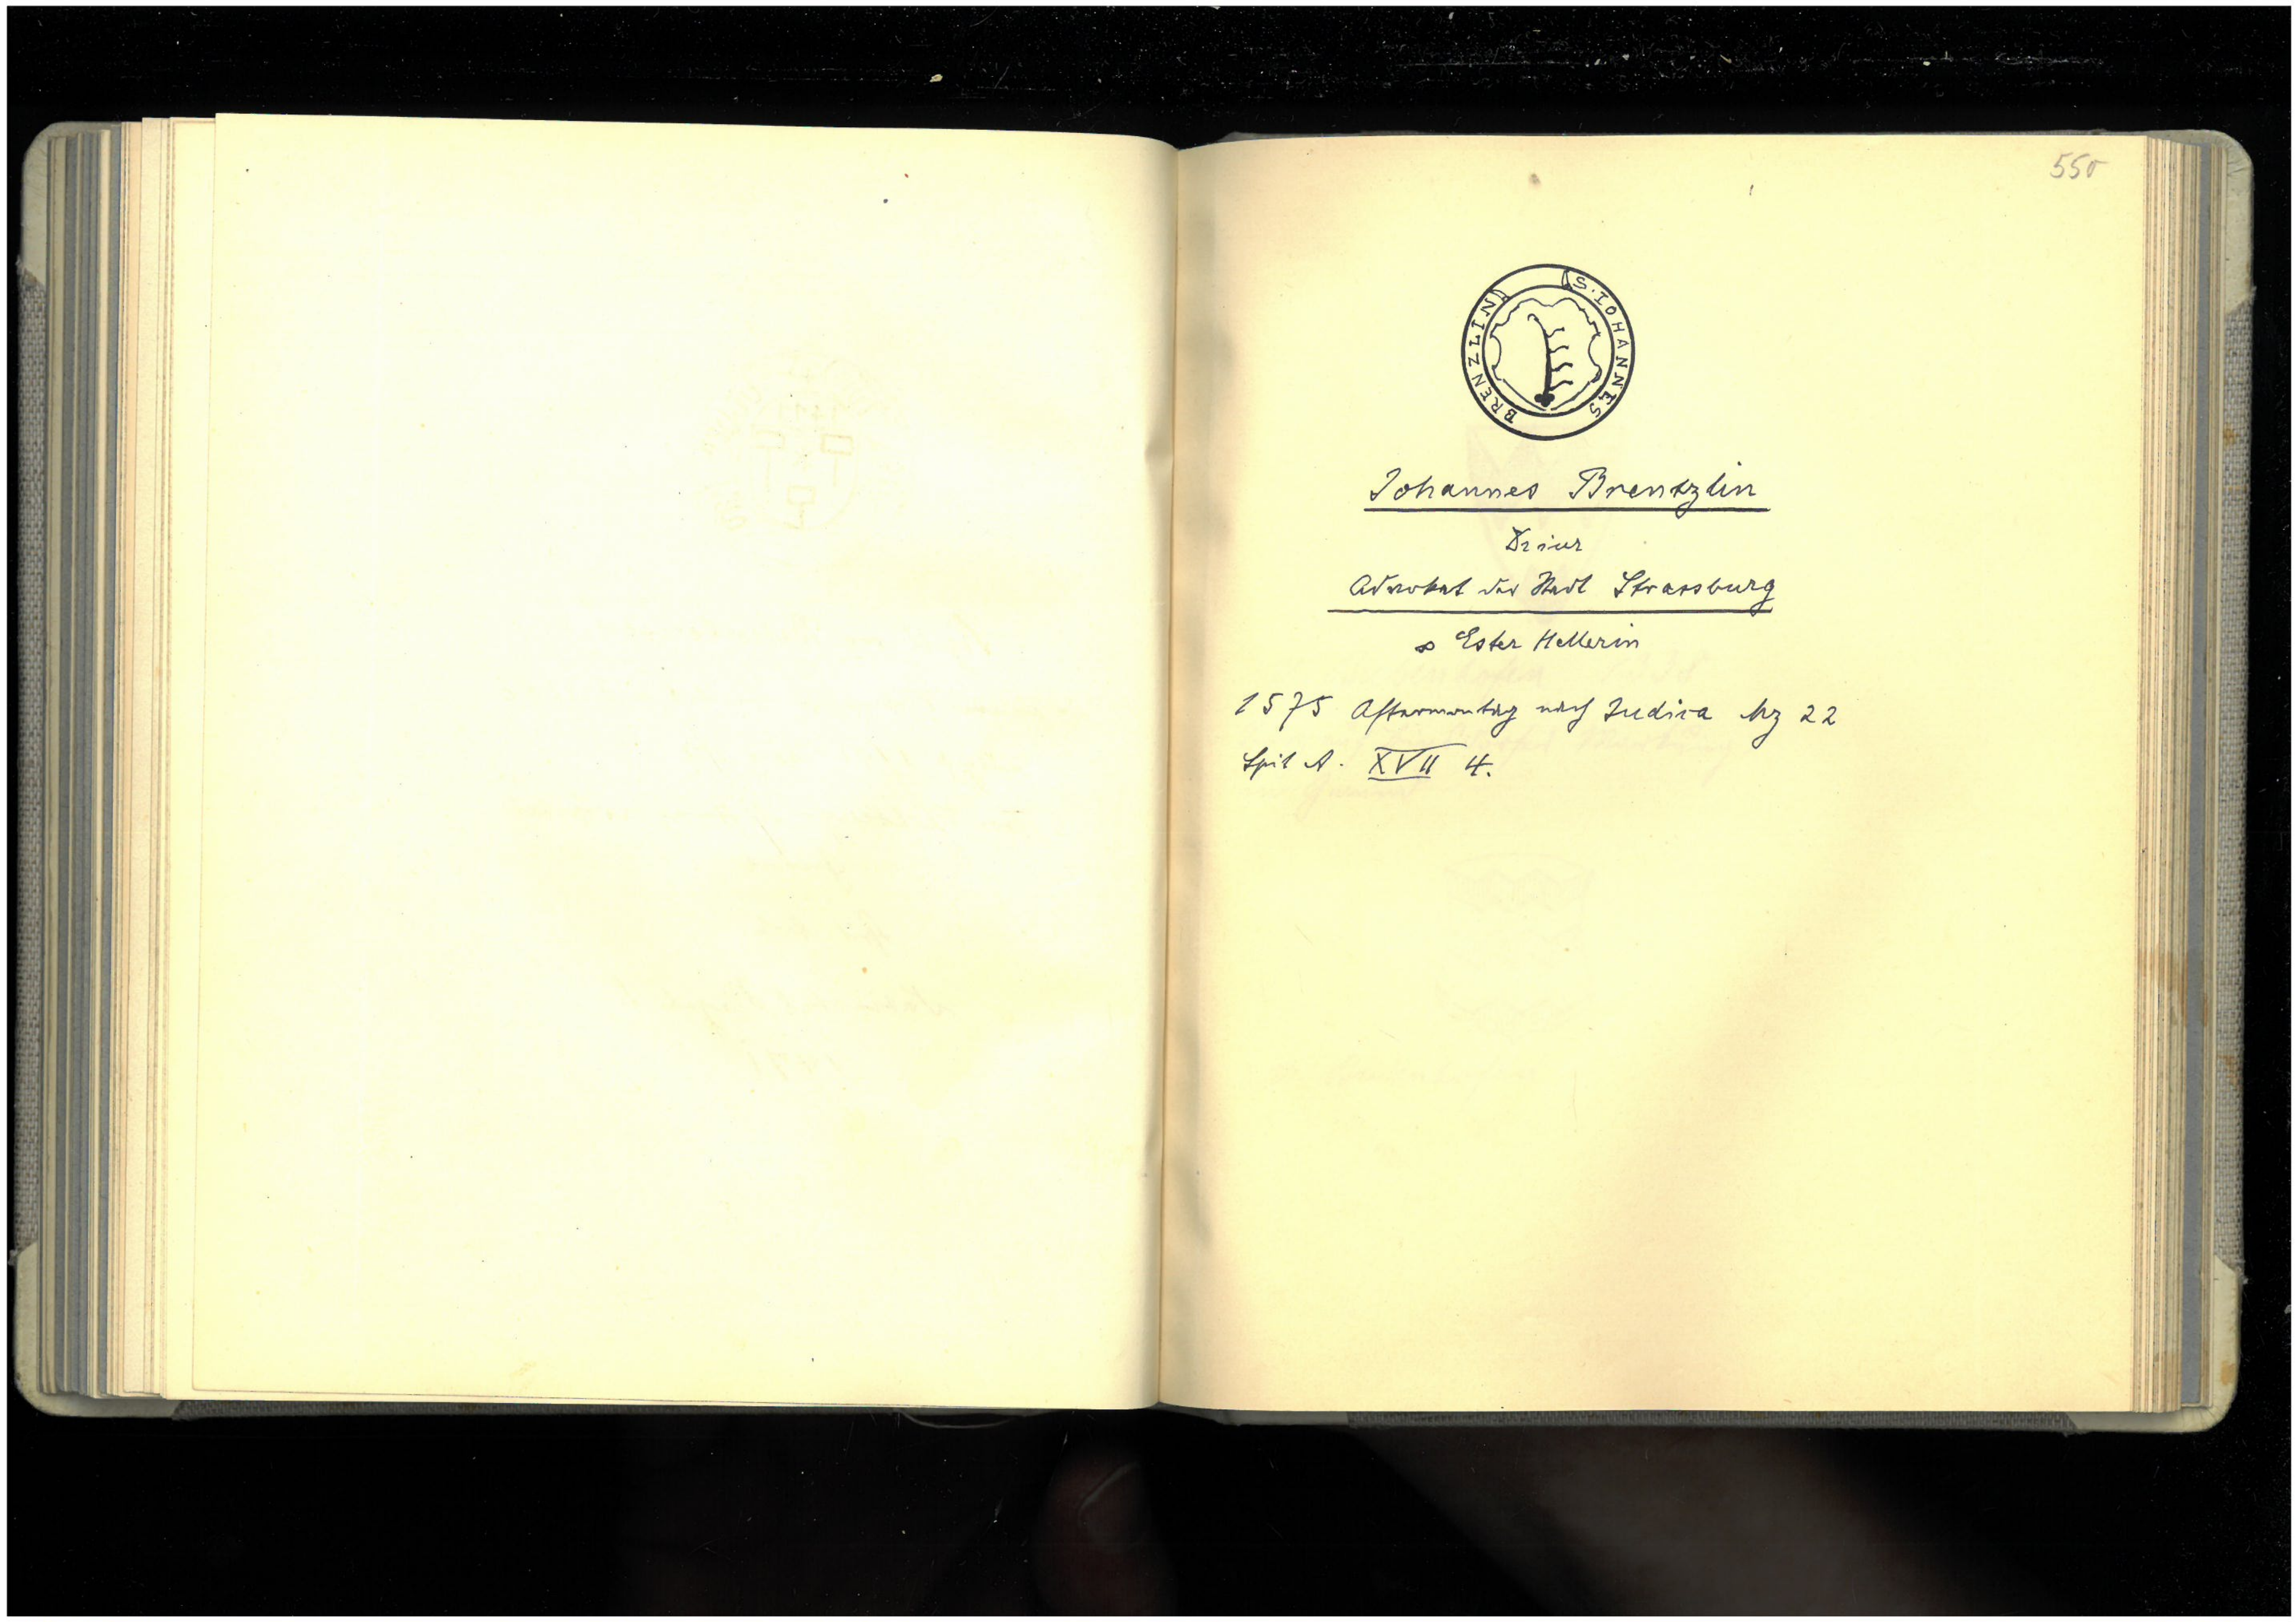 550
S. IOHANNES BRENZLIN
Johannes Brentzlin
Dr iur
Advokat der Stadt Strassburg
∞ Ester Hellerin
1575 Aftermontag nach Judica Mz 22
Spit A. XVII 4.